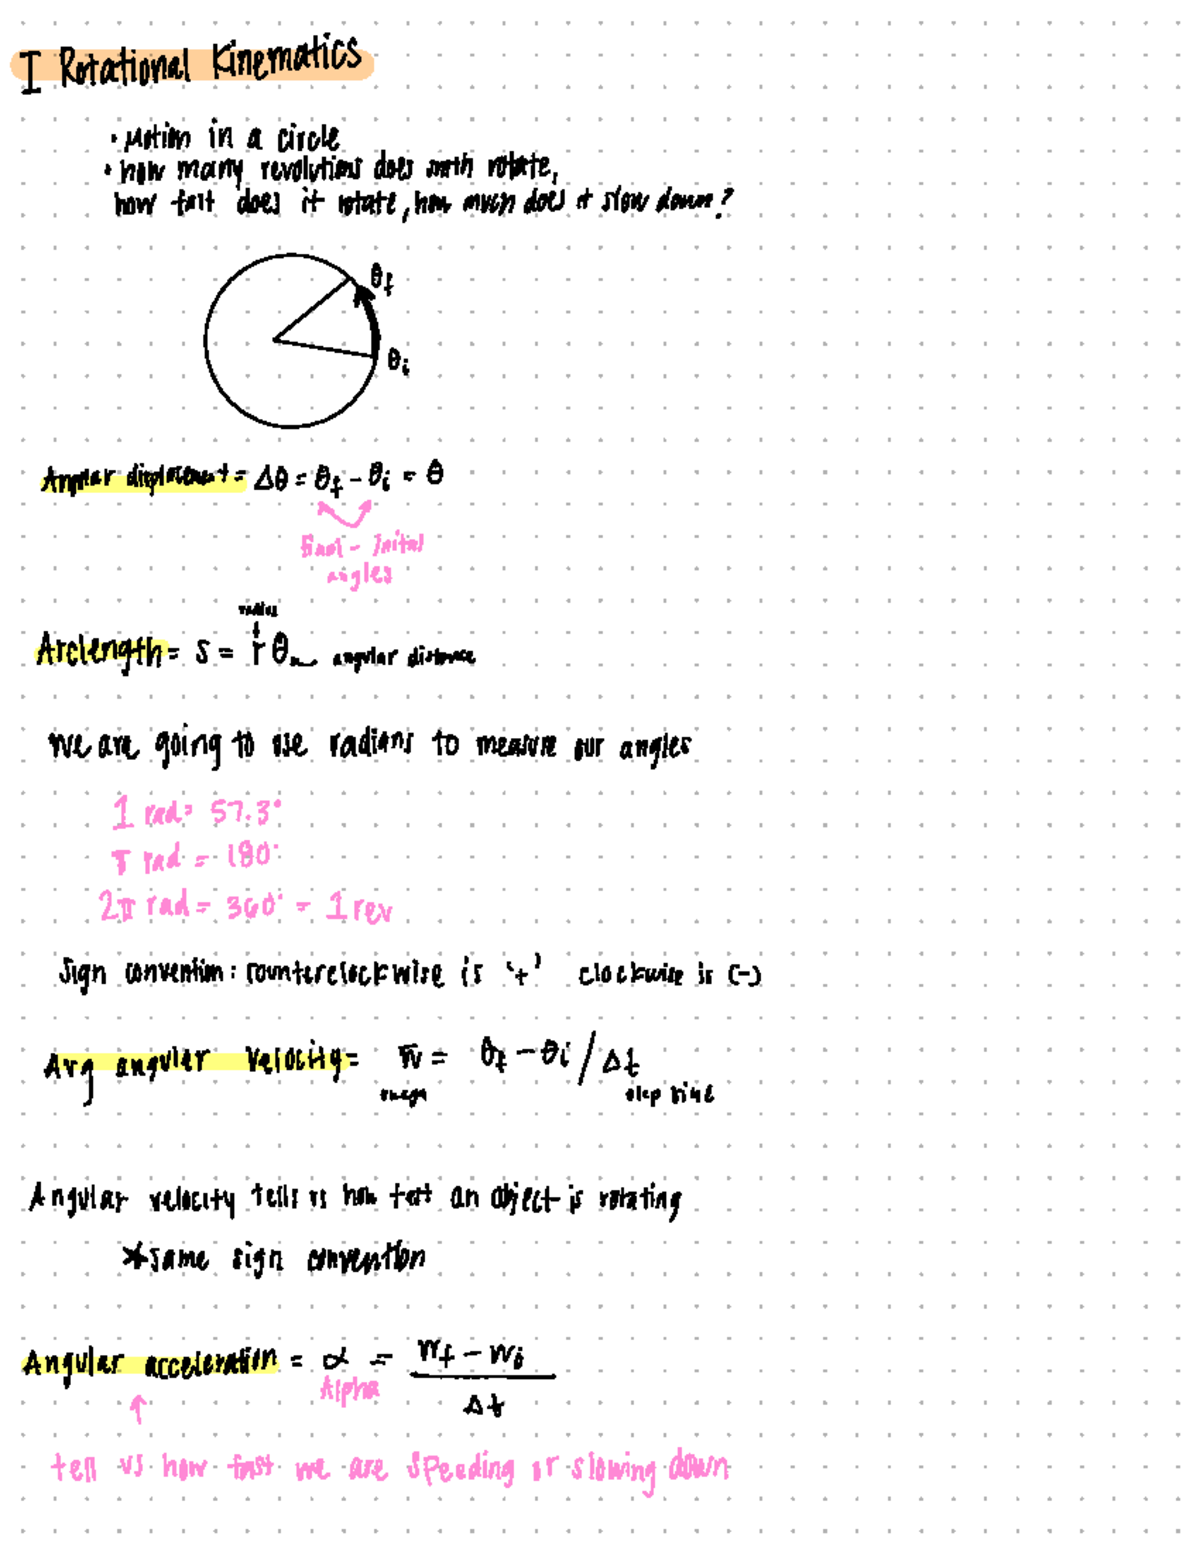 I Rotational Kinematics
• Motion in a circle
• how many revolutions does earth rotate,
how fast does it rotate, how much does it slow down?
θf
θi
Angular displacement = Δθ = θf - θi = θ
final - Inital
angles
radius
Arclength = s = r θ angular distance
We are going to use radians to measure our angles
1 rad = 57.3°
π rad = 180°
2π rad = 360° = 1 rev
Sign convention: counterclockwise is '+' clockwise is (-)
Avg angular velocity = w̅ = θf - θi / Δt
omega
Angular velocity tells us how fast an object is rotating
*same sign convention
Angular acceleration = α = wf - wi
Alpha
Δt
tell us how fast we are speeding or slowing down